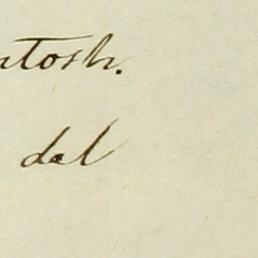 ntosh.
del